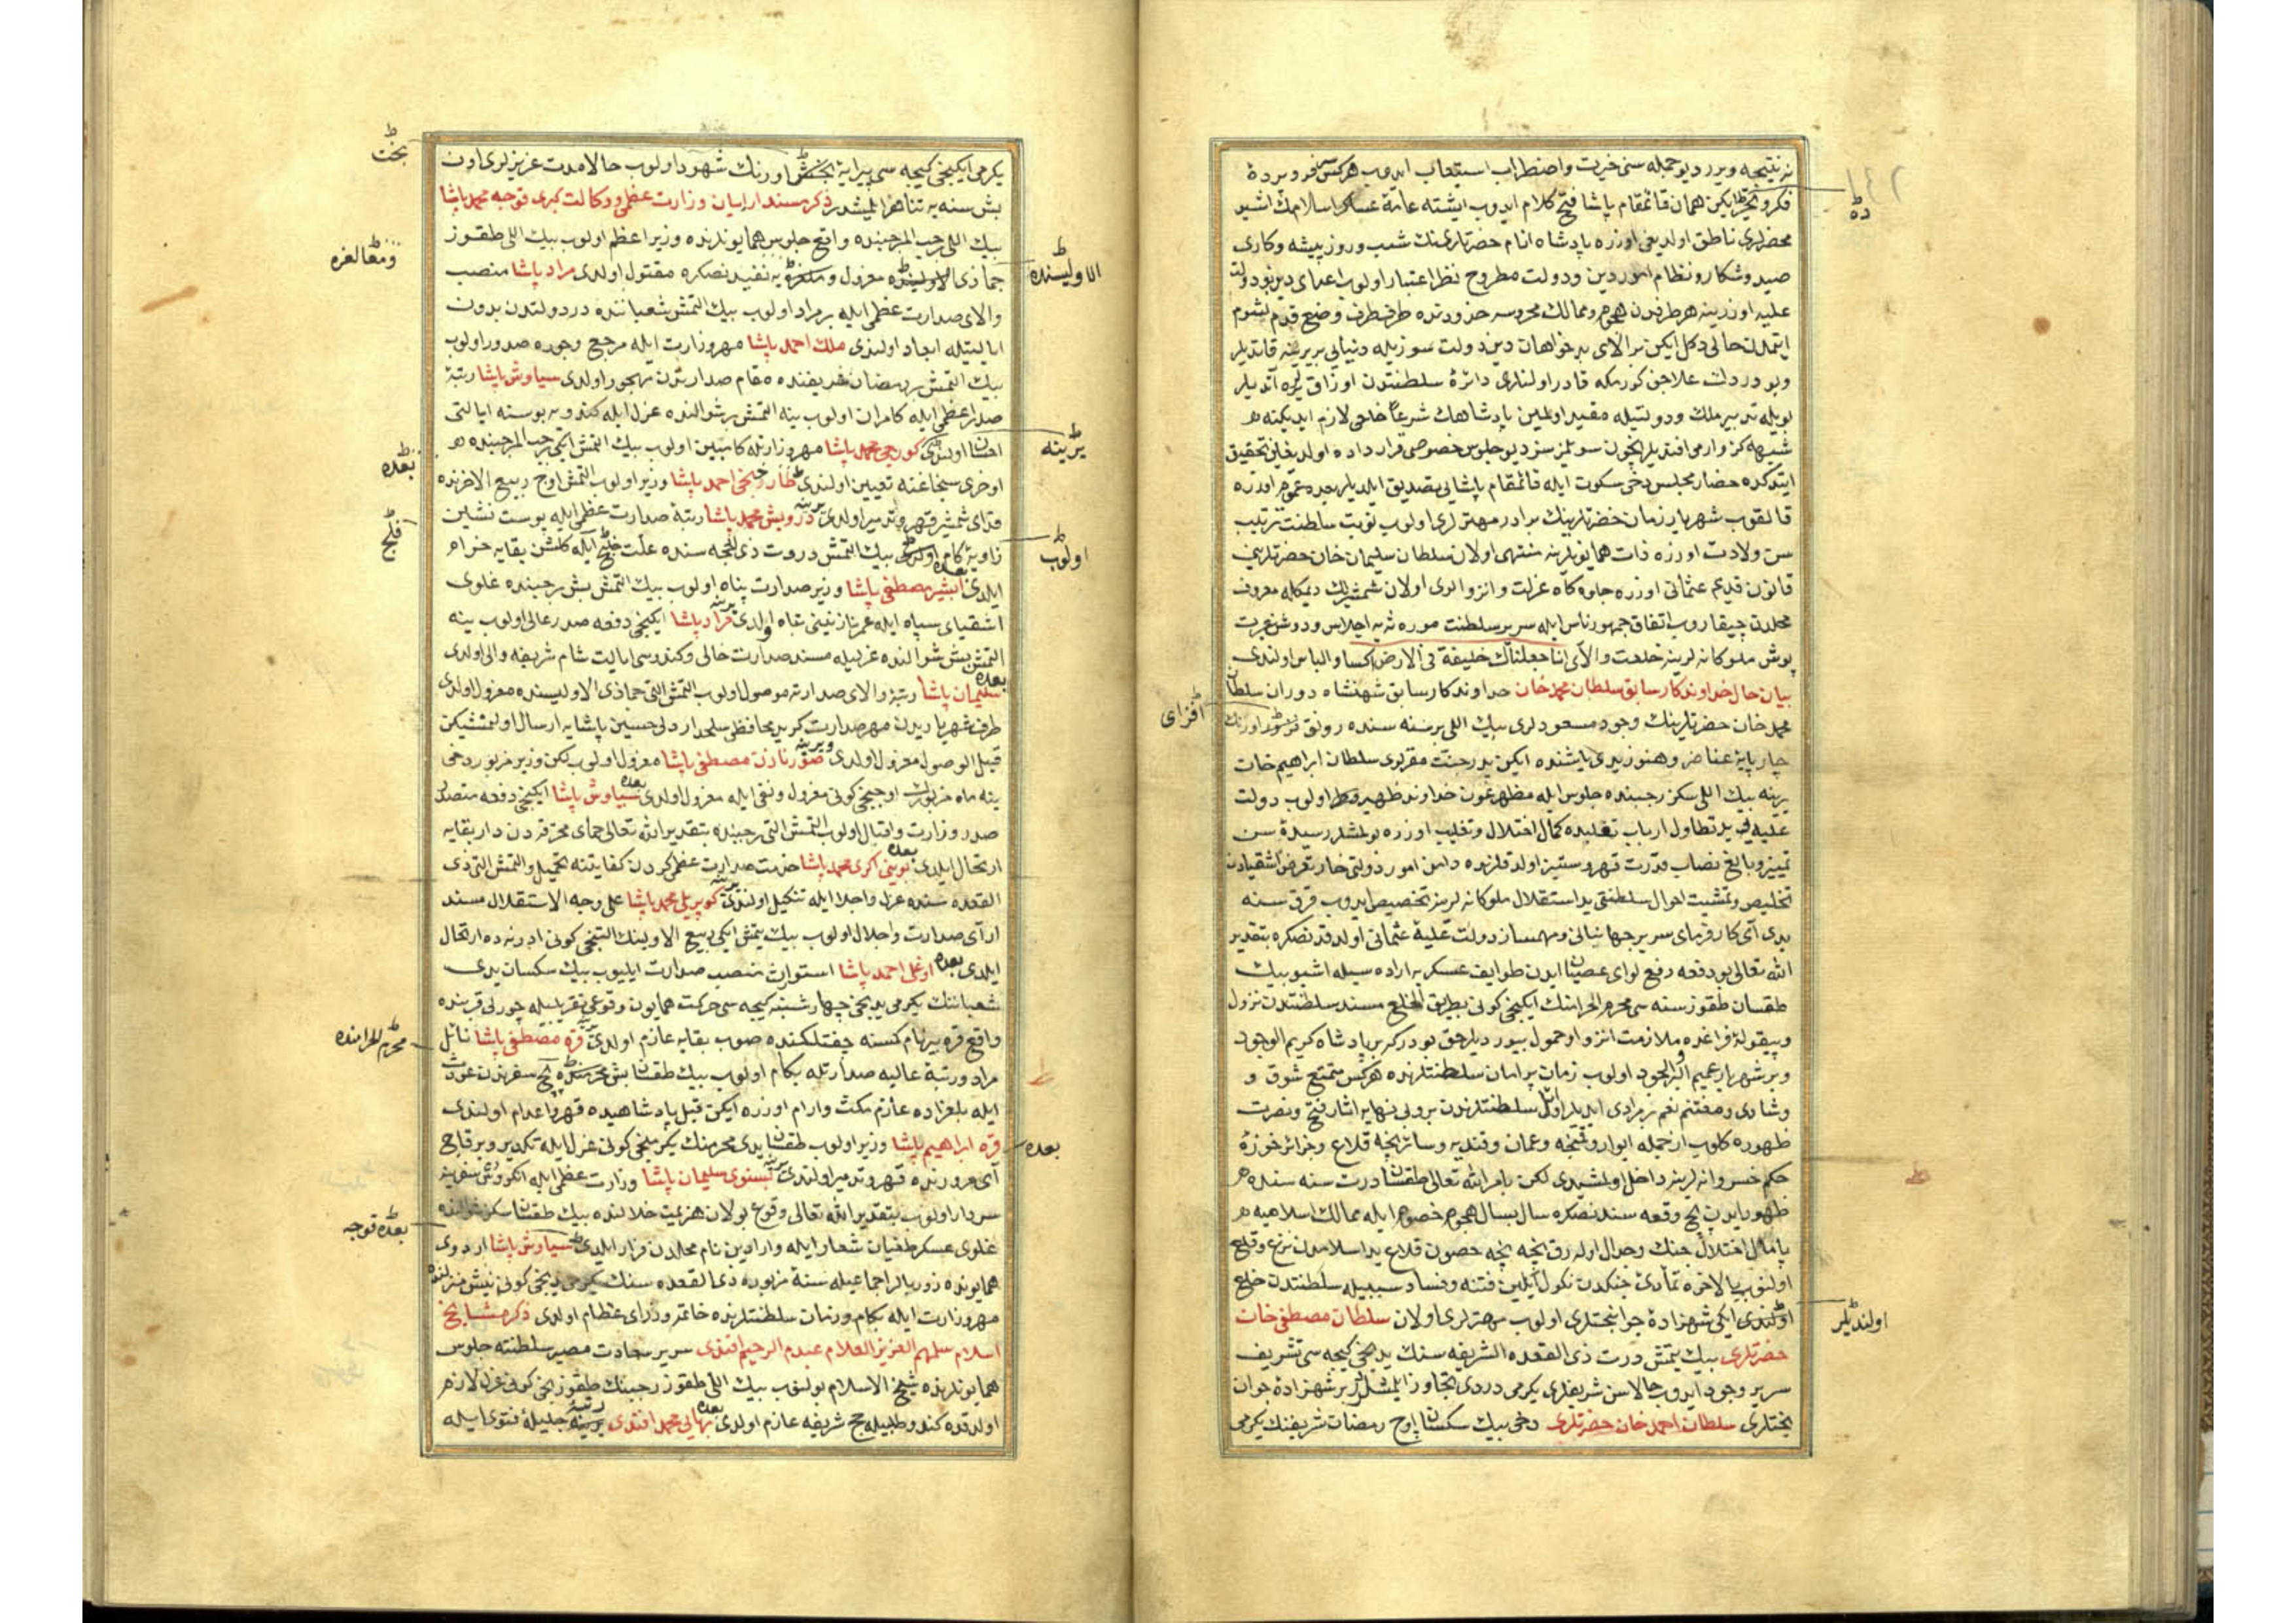 نه نتیجه ویرر دیو جمله سنی حیرت واضطراب استیعاب ایدوب هرکس فرو بردهٔ
فکر وتحیر ایکن همان قائمقام پاشا فتح کلام ایدوب ایشته عامهٔ عساکر اسلامک اشبو
محضرلری ناطق اولدیغی اوزره پادشاه انام حضرتلرینک شب وروز پیشه وکاری
صید وشکار ونظام امور دین ودولت مطروح نظر اعتبار اولوب اعدای دین بو دولت
علیه اوزرینه هر طرفدن هجوم وممالک محروسه حدودنده طرف طرف وضع قدم لشوم
ایتمدن حالی دکل ایکن بر الای بدخواهان دین دولت سوزیله دنیایی بربرینه قاتدیلر
وبو درددن علاجن کورمکه قادر اولنلری دائرهٔ سلطنتدن اوزاق یره آتدیلر
بویله تدبیر ملک ودولتیله مقید اولمین پادشاهک شرعا خلعی لازم ایدیکنه
شبهه کز وارمی افندیلر نیچون سویلمزسز دیو جلوس خصوصی قرارداده اولدیغنی تحقیق
ایتدکده حضار مجلس دخی سکوت ایله قائمقام پاشایی تصدیق ایلدیلر بعده عموم اوزره
قالقوب شهریار زمان حضرتلرینک برادر مهترلری اولوب نوبت سلطنت ترتیب
سن ولادت اوزره ذات همایونلرینه منتهی اولان سلطان سلیمان خان حضرتلرینی
قانون قدیم عثمانی اوزره جلوه کاه عزلت وانزوالری اولان شمشیرلک دیمکله معروف
محلدن چیقاروب اتفاق جمهور ناس ایله سریر سلطنت موروثه یه اجلاس ودوش غیرت
پوش ملوکانه لرینه خلعت والای انا جعلناک خلیفة فی الارض اکسا والباس اولندی
بیان حال خداوندکار سابق سلطان محمد خان خداوندکار سابق شهنشاه دوران سلطان
محمد خان حضرتلرینک وجود مسعودلری بیک اللی بر سنه سنده رونق اورنک
افزای
چار پایهٔ عناصر وهنوز یدی یاشنده ایکن پدر جنت مقرلری سلطان ابراهیم خان
یرینه بیک اللی سکز رجبنده جلوس ایله مظهر عون خداوند ظهیر اولوب دولت
علیه ید تطاول ارباب تغلبده کمال اختلال وتغلیب اوزره بولمشلر رسیدهٔ سن
تمییز وبالغ نصاب قدرت قهر وستیز اولدقلرنده دامن امور دولتی خار تعرض اشقیادن
تخلیص وتمشیت احوال سلطنتی ید استقلال ملوکانه لرینه تخصیص ایدوب قرق سنه
یدی آی کارفرمای سریر جهانبانی ومهمساز دولت علیهٔ عثمانی اولدقدنصکره بتقدیر
الله تعالی بو دفعه رفع لوای عصیان ایدن طوایف عسکریه اراده سیله اشبو بیک
طقسان طقوز سنه سی محرم الحرامنک ایکنجی کونی بطریق الخلع مسند سلطنتدن نزول
وبیغولهٔ فراغده ملازمت انزوا وخمول بیوردیلر حق بودرکه بر پادشاه کریم الوجود
وبر شهریار عمیم الجود اولوب زمان پر امان سلطنتلرنده هرکس متمتع شوق و
وشادی ومغتنم نعم بر مرادی ایدیلر اوائل سلطنتلرندن برولی نهایه اثار فتح ونصرت
ظهوره کلوب از جمله ایوار وقنیجه وعمان وقندیه وسائر نیجه قلاع وجزائر حوزهٔ
حکم خسروانه لرینه داخل اولمشیدی لکن بامر الله تعالی طقسان درت سنه سنده
ظهور ایدن بچ وقعه سندنصکره سال بسال هجوم خصوم ایله ممالک اسلامیه
پامال اختلال جنک وجدال اوله رق نیجه نیجه حصون قلاع ید اسلامدن نزع وقلع
اولنوب بالاخره تمادی جنکدن نکول ایلین فتنه وفساد سببیله سلطنتدن خلع
اولندی ایکی شهزادهٔ جوانبختلری اولوب مهترلری اولان سلطان مصطفی خان
اولندیلر
حضرتلری بیک یتمش درت ذی القعده الشریفه سنک یدنجی کیجه سی تشریف
سریر وجود ایدوب حالا سن شریفلری یکرمی دردی تجاوز ایلمشلر بر شهزادهٔ جوان
بختلری سلطان احمد خان حضرتلری دخی بیک سکسان اوچ رمضان شریفنک یکرمی
یکرمی ایکنجی کیجه سی پیرایهٔ اورنک شهود اولوب حالا مدت عزیزلری اون
بخت
بش سنه یه تناهز ایلمشدر ذکر مسندارایان وزارت عظمی ووکالت کبری قوجه محمد پاشا
بیک اللی رجب المرجبنده واقع جلوس همایونلرنده وزیر اعظم اولوب بیک اللی طقوز
جماذی الاولیسنده معزول وملغره یه نفیدنصکره مقتول اولدی مراد پاشا منصب
الاولیسنده
ومغالغره
والای صدارت عظمی ایله بر مراد اولوب بیک التمش شعباننده در دولتدن بدون
ایالتیله ابعاد اولندی ملک احمد پاشا مهر وزارت ایله مرجع وجوه صدور اولوب
بیک التمش بر رمضان شریفنده مقام صدارتدن مهجور اولدی سیاوش پاشا رتبهٔ
صدر اعظمی ایله کامران اولوب ینه التمش بر شوالنده عزل ایله کندویه بوسنه ایالتی
احسان اولندی کورجی محمد پاشا مهر وزارتله کامبین اولوب بیک التمش ایکی رجب المرجبنده
یرینه
اوخری سنجاغنه تعیین اولندی طارخونجی احمد پاشا وزیر اولوب التمش اوچ ربیع الاخرنده
بعده
فدای شمشیر قهر وتدمیر اولدی یرینه درویش محمد پاشا رتبهٔ صدارت عظمی ایله پوست نشین
زاویهٔ کام بیک التمش درت ذی الحجه سنده علت فلج ایله کلشن بقایه خرام
اولوب
فلج
ایلدی بعده ابشیر مصطفی پاشا وزیر صدارت پناه اولوب بیک التمش بش رجبنده غلوی
اشقیای سپاه ایله عمر نازنینی تباه اولدی یرینه مراد پاشا ایکنجی دفعه صدر عالی اولوب ینه
التمش بش شوالنده عزلیله مسند صدارت خالی وکندوسی ایالت شام شریفه والی اولدی
بعده سلیمان پاشا رتبهٔ والای صدارته موصول اولوب التمش التی جماذی الاولیسنده معزول اولدی
طرف شهریاریدن مهر صدارت کرید محافظی سلحدار دلی حسین پاشایه ارسال اولنمشیکن
قبل الوصول معزول اولدی ویرینه صورنازن مصطفی پاشا معزول اولوب لکن وزیر مزبور دخی
ینه ماه مزبورک اوچنجی کونی معزول ونفی ایله معزول اولدی بعده سیاوش پاشا ایکنجی دفعه متصدر
صدر وزارت واقبال اولوب التمش التی رجبنده بتقدیر الله تعالی حمای محترقه دن دار بقایه
ارتحال ایلدی بعده بوینی اکری محمد پاشا خدمت صدارت عظمی کردن کفایتنه تحمیل والتمش التی ذی
القعده سنده عزل واجلا ایله تنکیل اولندی یرینه کوپریلی محمد پاشا علی وجه الاستقلال مسند
ارای صدارت واجلال اولوب بیک یتمش ایکی ربیع الاولینک التنجی کونی ادرنه ده ارتحال
ایلدی بعده اوغلی احمد پاشا استوارث منصب صدارت ایلیوب بیک سکسان یدی
شعباننک یکرمی یدنجی چهارشنبه کیجه سی حرکت همایون وقوعی تقریبیله چورلی قربنده
واقع قره بیر نام کمسنه چفتلکنده صوب بقایه عازم اولدی یرینه قره مصطفی پاشا نائل
مراد ورتبهٔ عالیه صدارتله بکام اولوب بیک طقسان بش بچ سفرندن عودت
محرم الحرامنده
ایله بلغراده عازم مکث وارام اوزره ایکن قبل پادشاهیده قهر واعدام اولندی
قره ابراهیم پاشا وزیر اولوب طقسان یدی محرمنک یکرمنجی کونی عزل ایله تکدیر وبر قاچ
بعده
آی مرورنده قهر وتدمیر اولندی یرینه بسنوی سلیمان پاشا وزارت عظمی ایله انکروس سفرینه
سردار اولوب بتقدیر الله تعالی وقوع بولان هزیمت خلالنده بیک طقسان سکز شوالنده
غلوی عسکر طغیان شعار ایله وارادین نام محلدن فرار ایلدی سیاوش پاشا اردوی
بعده قوجه
همایونده زوربالر اجماعیله سنهٔ مزبوره ذی القعده سنک یکرمی یدنجی کونی نیش منزلنده
مهر وزارت ایله بکام وزمان سلطنتلرنده خاتم وزرای عظام اولدی ذکر مشایخ
اسلام سلمهم العزیز العلام عبدم الرحیم افندی سریر سعادت مصیر سلطنته جلوس
همایونلرنده شیخ الاسلام بولنوب بیک اللی طقوز رجبنک طقوزنجی کونی عزل لازم
اولدقده کندو طلبیله حج شریفه عازم اولدی بعده بهائی محمد افندی رتبهٔ جلیلهٔ فتوی ایله